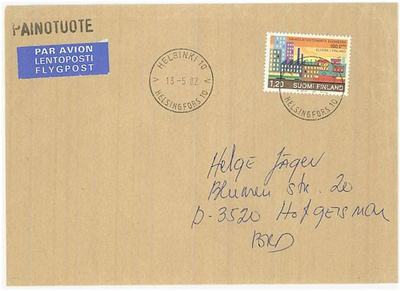 PAINOTUOTE
PAR AVION
LENTOPOSTI
FLYGPOST
HELSINKI 10
13-5 82
HELSINGFORS 10
1,20 SUOMI FINLAND
HELSINGFORS 10
Helge Jäger
Blumen str. 20
D-3520 Hofgeismar
BRD